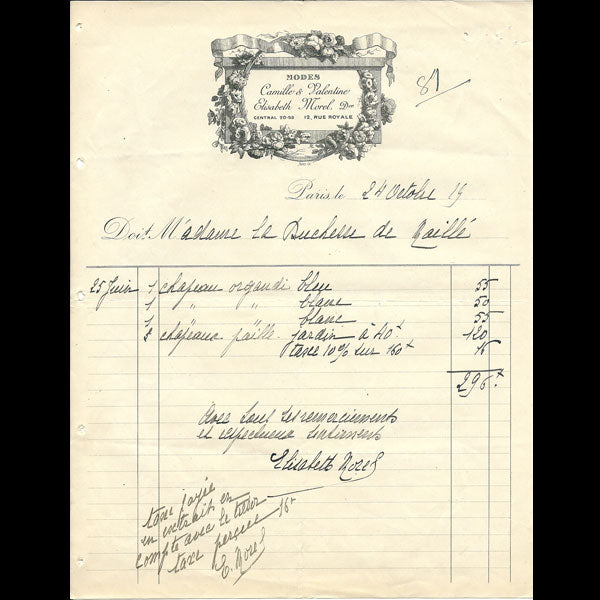 MODES
Camille & Valentine
Elisabeth Morel. Dce
CENTRAL 20-93 12, RUE ROYALE
81
Paris, le 24 Octobre 19
Doit Madame la Duchesse de Maillé
25 Juin 1 chapeau organdi bleu 55
1 " " blanc 50
1 blanc 55
3 chapeaux paille jardin à 40f 120
taxe 10% sur 160f 16
296f
Avec tous les remerciements
et respectueux sentiments
Elisabeth Morel
taxe payée
en extrait en
compte avec le trésor
taxe perçue 16f
E. Morel